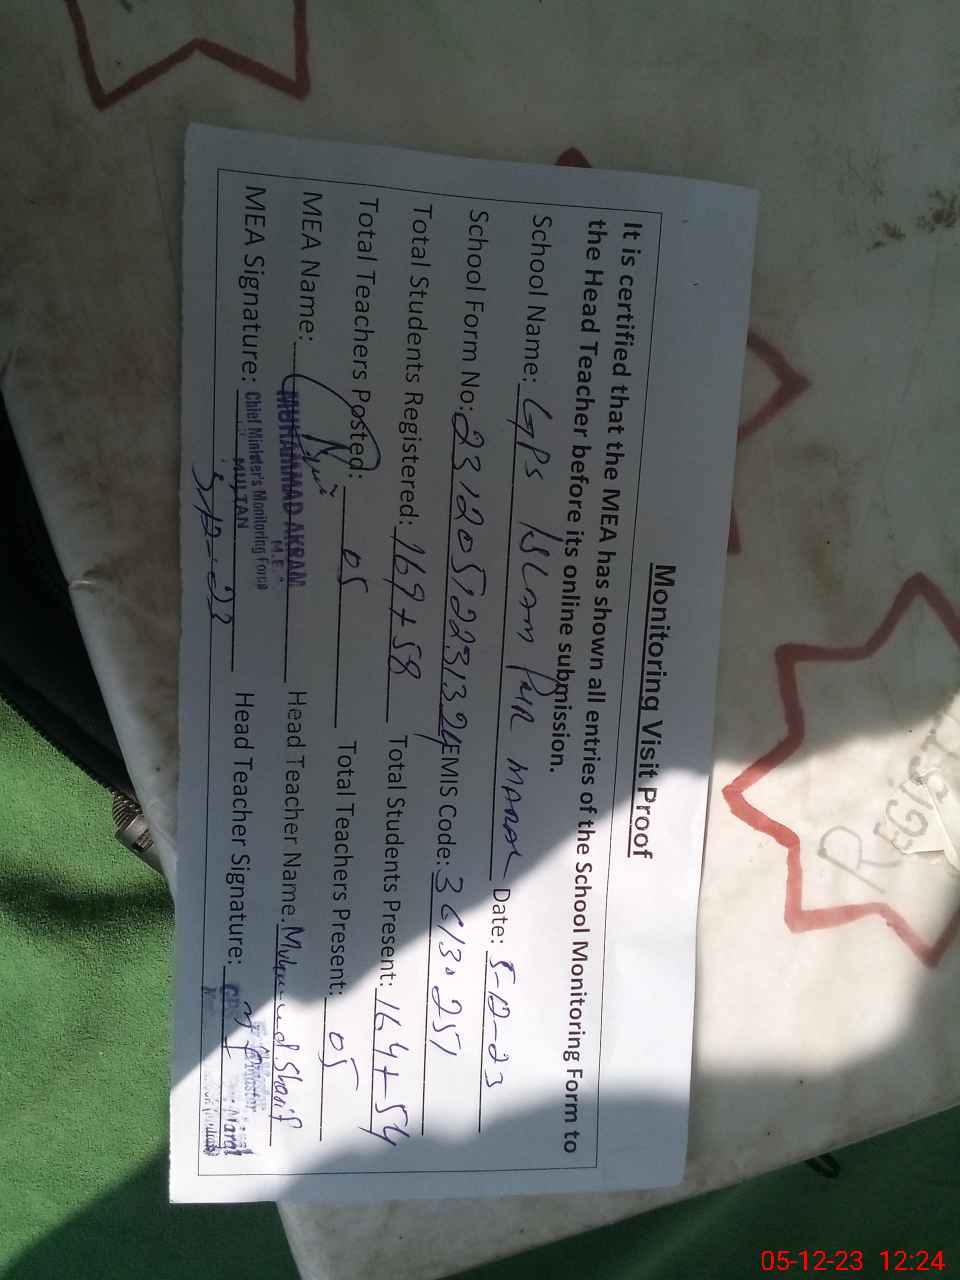 Monitoring Visit Proof
It is certified that the MEA has shown all entries of the School Monitoring Form to
the Head Teacher before its online submission.
School Name: GPS ISLAM PUR MARAL Date: 5-12-23
School Form No: EMIS Code:
Total Students Registered: 169+58 Total Students Present: 164+54
Total Teachers Posted: 05 Total Teachers Present: 05
MEA Name: MUHAMMAD AKRAM Head Teacher Name: Muhammad Sharif
M.E.A
MEA Signature: Chief Minister's Monitoring Force Head Teacher Signature:
MULTAN
5-12-23
REGIST
05-12-23 12:24